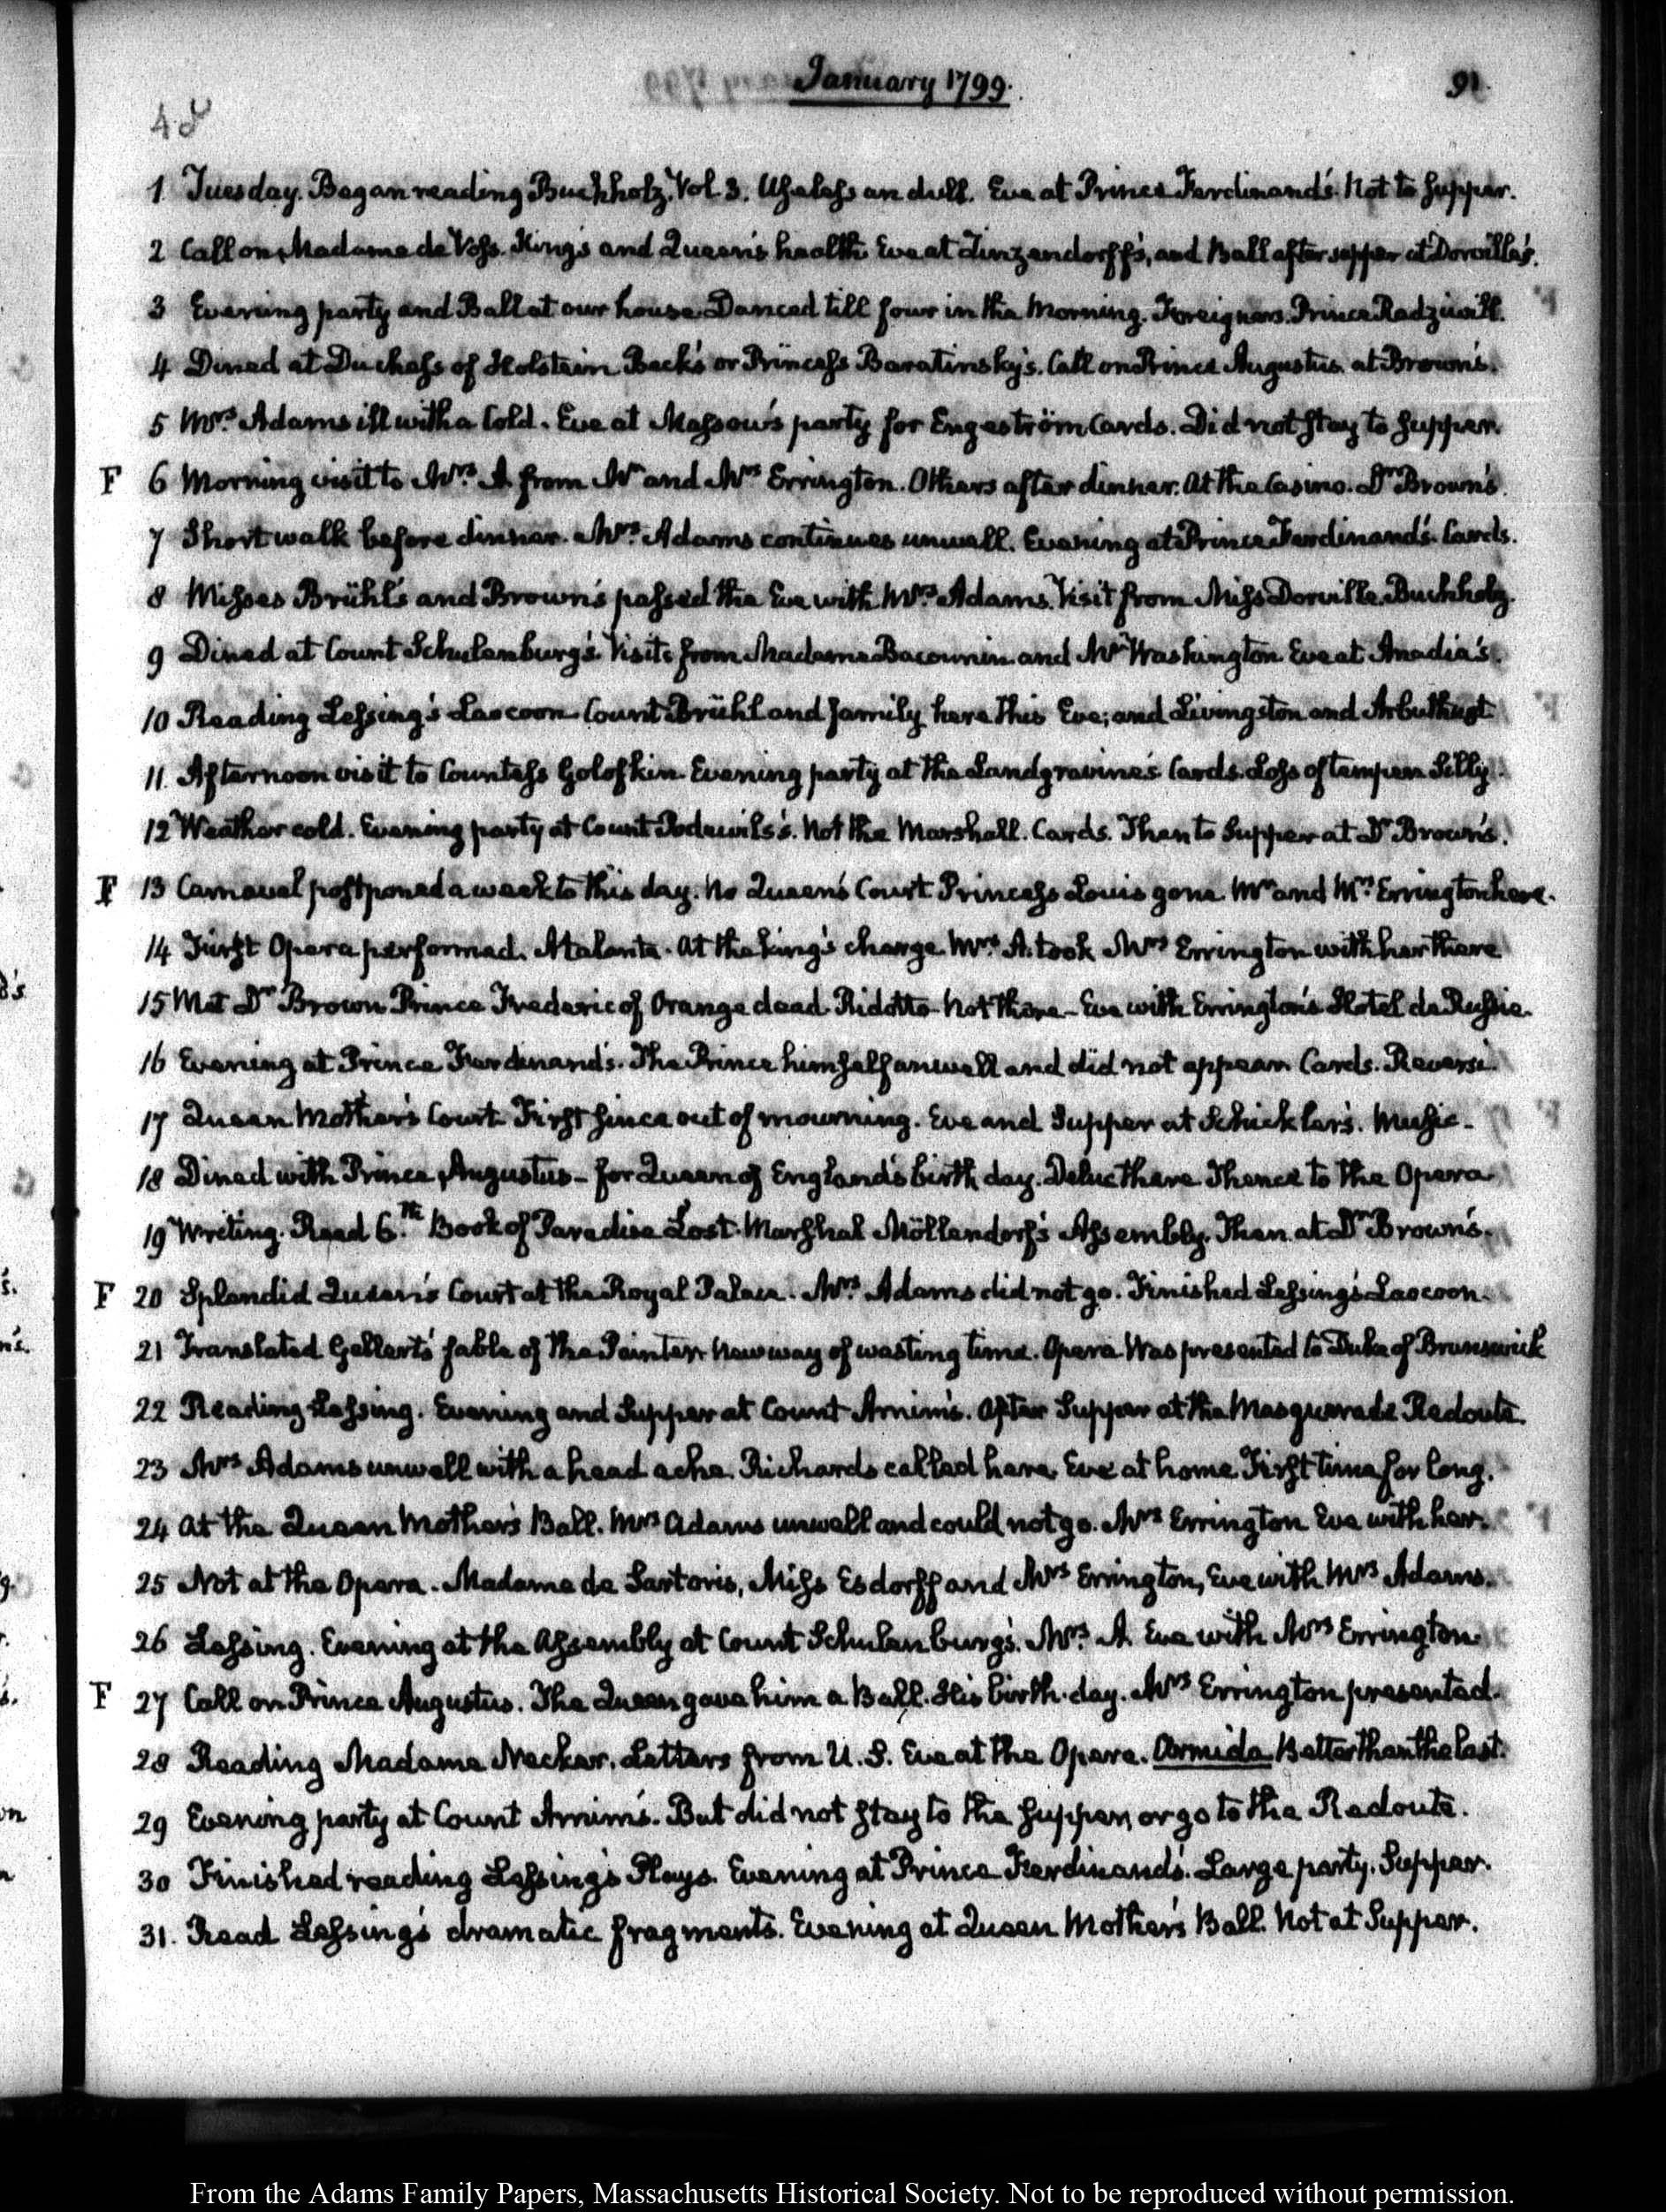 January 1799.
91.
48
1 Tuesday. Began reading Buchholz. Vol. 3. Useless an dull. Eve at Prince Ferdinand's. Not to Supper.
2 Call on Madame de Voss. King's and Queen's health. Eve at Zinzendorff's, and Ball after supper at Dorville's.
3 Evening party and Ball at our house. Danced till four in the Morning. Foreigners. Prince Radziwill.
4 Dined at Duchess of Holstein Beck's or Princess Baratinsky's. Call on Prince Augustus. at Brown's.
5 Mrs. Adams ill with a Cold. Eve at Massow's party for Engeström Cards. Did not stay to Supper.
F 6 Morning visit to Mrs. A. from Mr and Mrs Errington. Others after dinner. At the Casino. Dr Brown's.
7 Short walk before dinner. Mrs. Adams continues unwell. Evening at Prince Ferdinand's. Cards.
8 Misses Brühl's and Brown's passed the Eve with Mrs. Adams. Visit from Miss Dorville. Buchholz.
9 Dined at Count Schulenburg's. Visits from Madame Bacounin and Mr Washington. Eve at Anadia's.
10 Reading Lessing's Laocoon. Count Brühl and family here this Eve; and Livingston and Arbuthnot.
11. Afternoon visit to Countess Golofkin. Evening party at the Landgravine's. Cards. Loss of temper. Silly.
12 Weather cold. Evening party at Count Podewils's. Not the Marshall. Cards. Then to Supper at Dr Brown's.
F 13 Carnaval postponed a week to this day. No Queen's Court. Princess Louis gone. Mr and Mrs. Errington here.
14 First Opera performed. Atalanta. At the King's charge. Mrs. A. took Mrs Errington with her there
15 Met Dr Brown. Prince Frederic of Orange dead. Ridotto. Not there - Eve with Errington's Hotel de Russie.
16 Evening at Prince Ferdinand's. The Prince himself unwell and did not appear. Cards. Reversi.
17 Queen Mother's Court. First since out of mourning. Eve and Supper at Schickler's. Music.
18 Dined with Prince Augustus - for Queen of England's birth day. Deluc there. Thence to the Opera
19 Writing. Read 6.th Book of Paradise Lost. Marshal Möllendorf's Assembly. Then at Dr Brown's.
F 20 Splendid Queen's Court at the Royal Palace. Mrs. Adams did not go. Finished Lessing's Laocoon.
21 Translated Gellert's fable of the Painter. New way of wasting time. Opera. Was presented to Duke of Brunswick
22 Reading Lessing. Evening and Supper at Count Arnim's. After Supper at the Masquerade Redoute.
23 Mrs Adams unwell with a head ache. Richards called here. Eve at home. First time for long.
24 At the Queen Mother's Ball. Mrs Adams unwell and could not go. Mrs Errington Eve with her.
25 Not at the Opera. Madame de Sartoris, Miss Esdorff and Mrs Errington, Eve with Mrs Adams.
26 Lessing. Evening at the Assembly at Count Schulenburg's. Mrs. A. Eve with Mrs Errington.
F 27 Call on Prince Augustus. The Queen gave him a Ball. His birth-day. Mrs Errington presented.
28 Reading Madame Necker. Letters from U. S. Eve at the Opera. Armida. Better than the last.
29 Evening party at Count Arnim's. But did not stay to the Supper, or go to the Redoute.
30 Finished reading Lessing's Plays. Evening at Prince Ferdinand's. Large party. Supper.
31. Read Lessing's dramatic fragments. Evening at Queen Mother's Ball. Not at Supper.
From the Adams Family Papers, Massachusetts Historical Society. Not to be reproduced without permission.